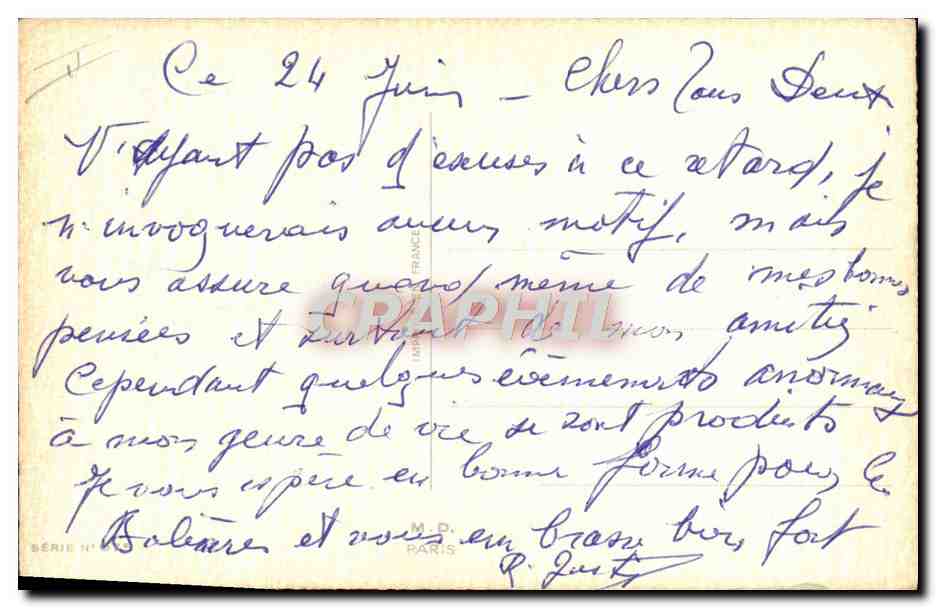 Ce 24 Juin - Chers Tous Deux
N'ayant pas d'excuses à ce retard, je
n'invoquerais aucun motif, mais
vous assure quand même de mes bonnes
pensées et surtout de mon amitié
Cependant quelques évènements anormaux
à mon genre de vie se sont produits
Je vous espère en bonne forme pour les
Baléares et vous embrasse bien fort
R. Just
CRAPHIL
FRANCE
M.D.
PARIS
SÉRIE N°